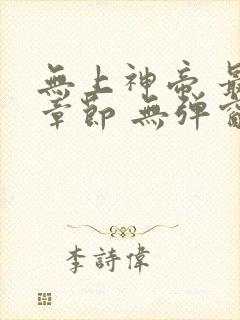 無上神帝 最
章節 無彈窗
李詩偉